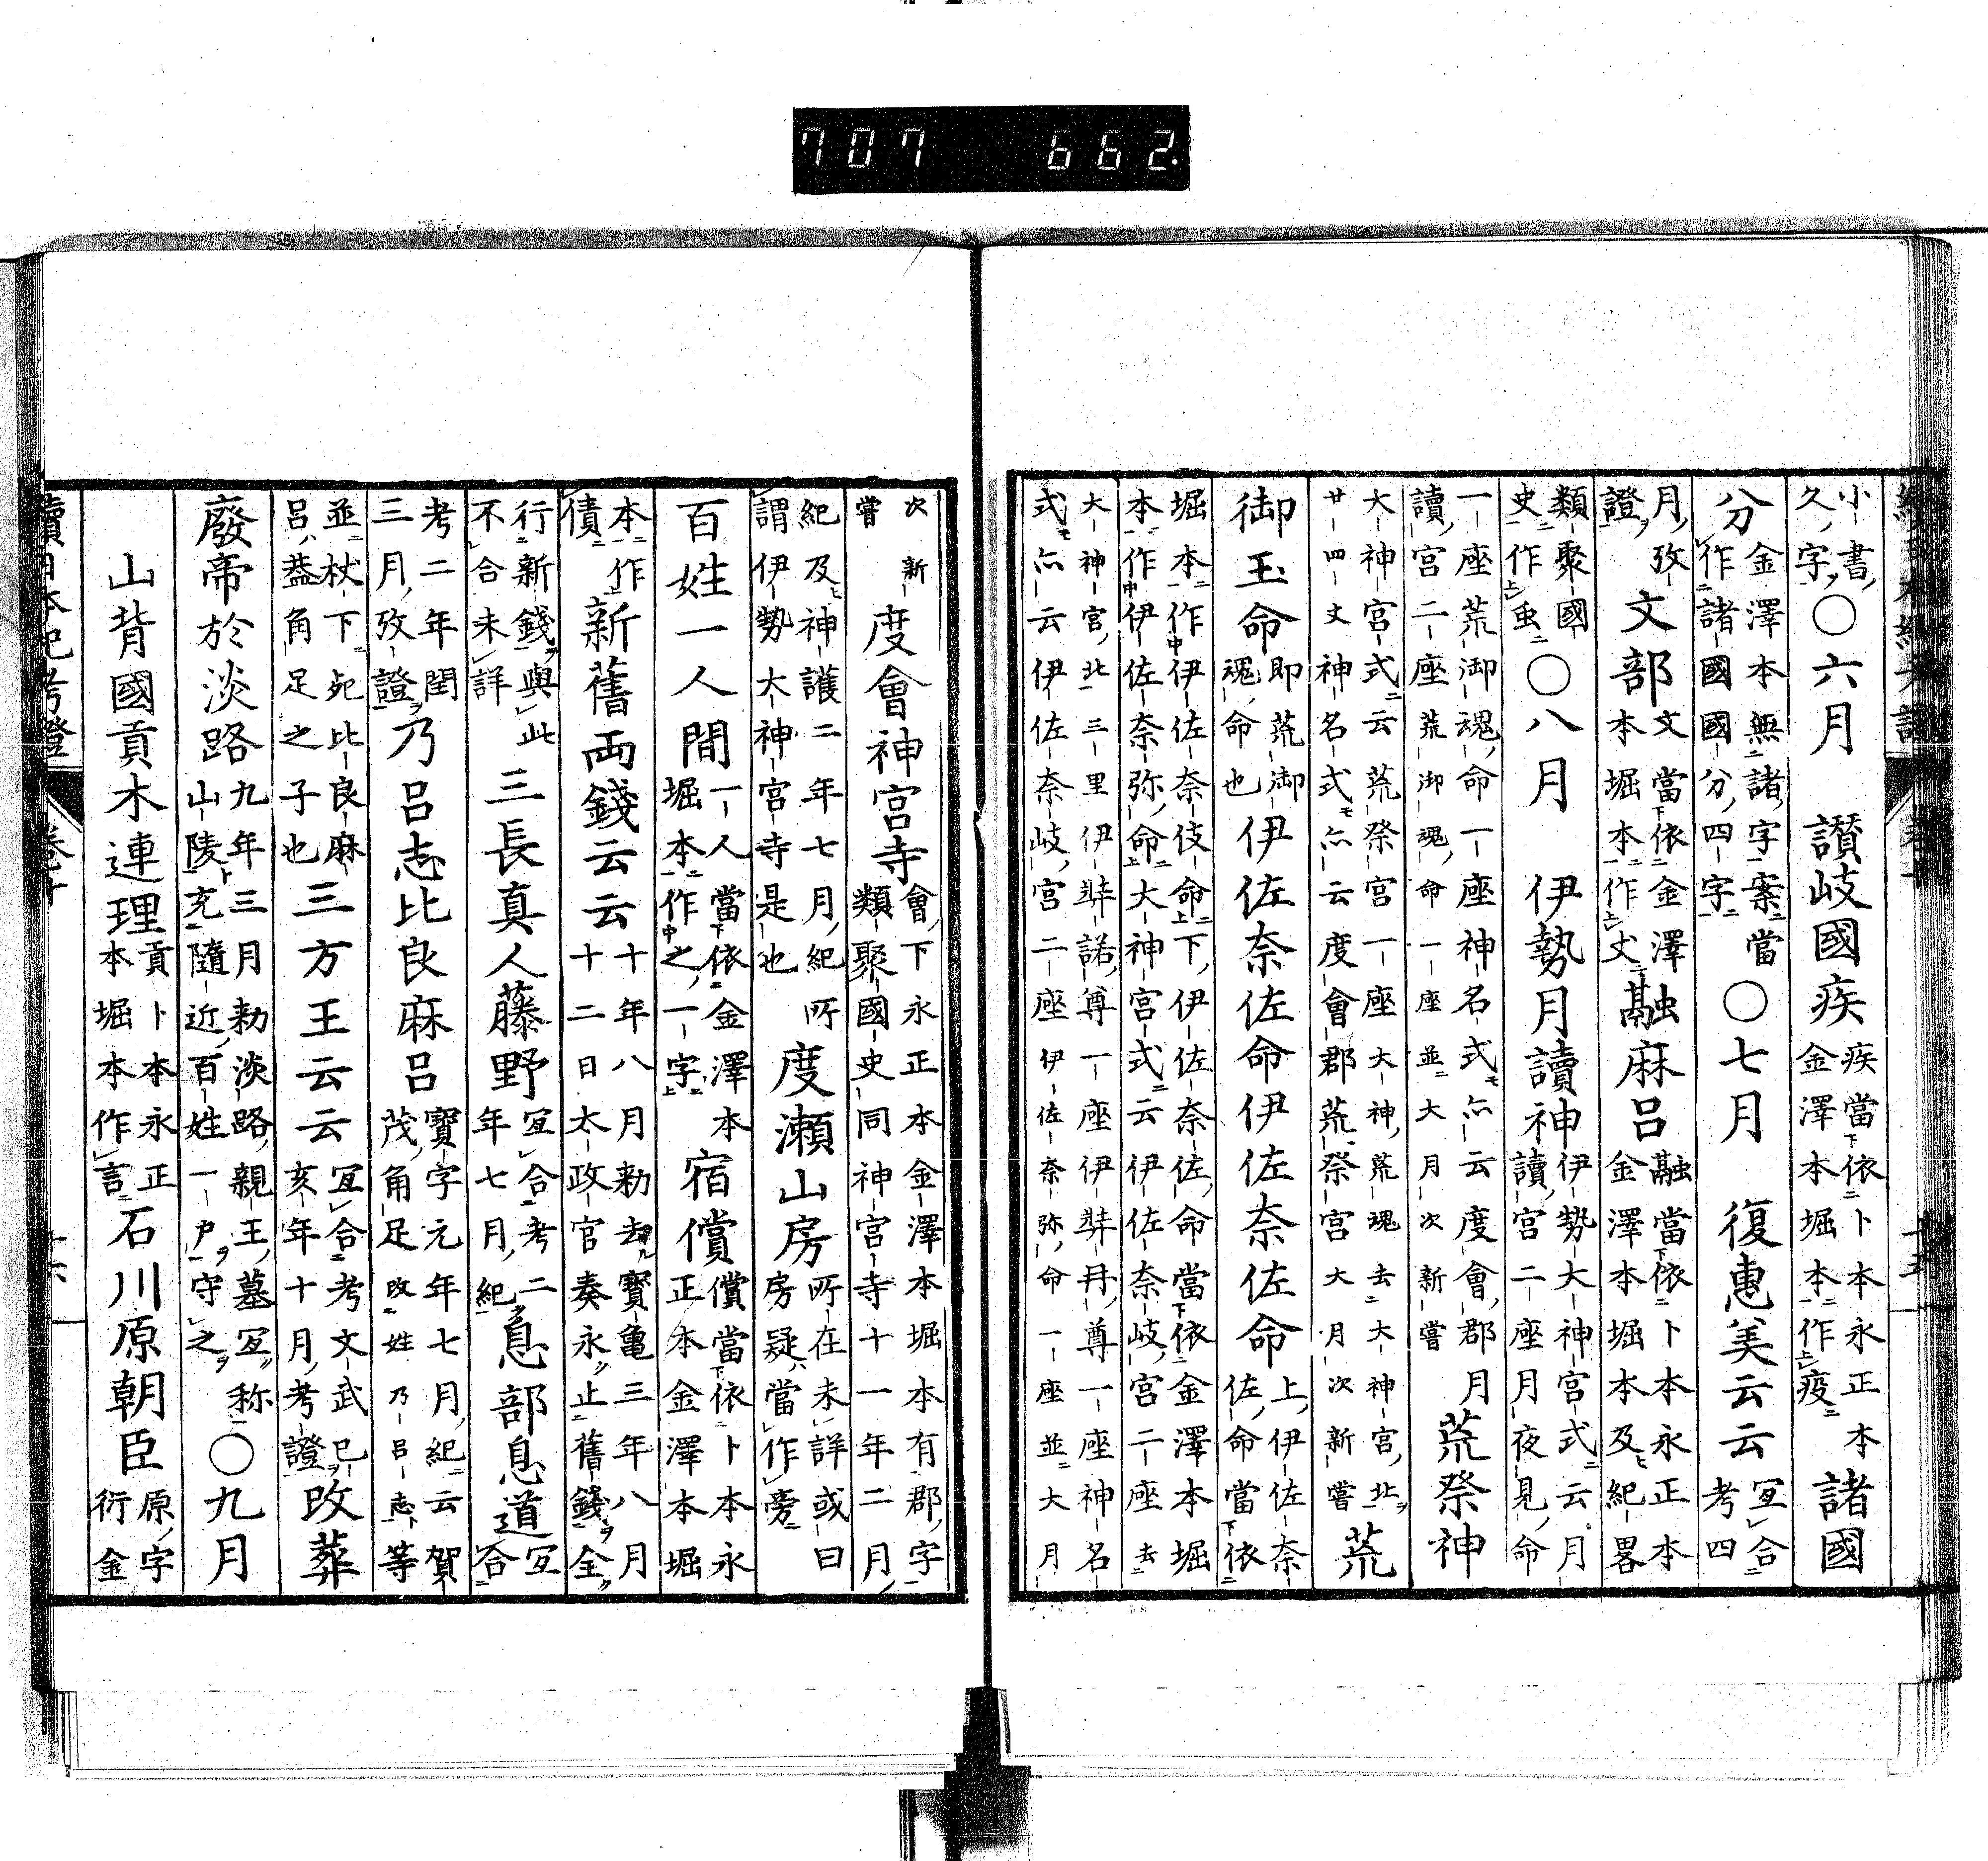 707 662.
小書久字〇六月 讃岐國疾疾當依卜本永正本金澤本堀本作疫諸國
分金澤本無諸字案當作諸國國分四字〇七月 復惠美云云宜合考四
月攷證文部文當依金澤本堀本作丈䎕麻呂䎕當依卜本永正本金澤本堀本及紀畧
類聚國史作䖝〇八月 伊勢月讀神伊勢大神宮式云月讀宮二座月夜見命
一座荒御魂命一座神名式亦云度會郡月讀宮二座荒御魂命一座並大月次新嘗荒祭神
大神宮式云荒祭宮一座大神荒魂去大神宮北廿四丈神名式亦云度會郡荒祭宮大月次新嘗荒
御玉命即荒御魂命也伊佐奈佐命伊佐奈佐命上伊佐奈佐命當依
堀本作伊佐奈伎命下伊佐奈佐命當依金澤本堀本作伊佐奈弥命大神宮式云伊佐奈岐宮二座去
大神宮北三里伊弉諾尊一座伊弉冊尊一座神名式亦云伊佐奈岐宮二座伊佐奈弥命一座並大月
次新嘗度會神宮寺會下永正本金澤本堀本有郡字類聚國史同神宮寺十一年二月
紀及神護二年七月紀所謂伊勢大神宮寺是也度瀬山房所在未詳或曰房疑當作旁
百姓一人間一人當依金澤本堀本作之一字宿償償當依卜本永正本金澤本堀
本作債新舊両錢云云十年八月勅去寳亀三年八月十二日太政官奏永止舊錢全
行新錢與此不合未詳三長真人藤野宜合考二年七月紀息部息道宜合
考二年閏三月攷證乃呂志比良麻呂寳字元年七月紀云賀茂角足改姓乃呂志等
並杖下死比良麻呂葢角足之子也三方王云云宜合考文武己亥年十月考證改葬
廢帝於淡路九年三月勅淡路親王墓宜称山陵充隨近百姓一戸守之〇九月
山背國貢木連理貢卜本永正本堀本作言石川原朝臣原字衍金
續日本紀考證 卷十 十六